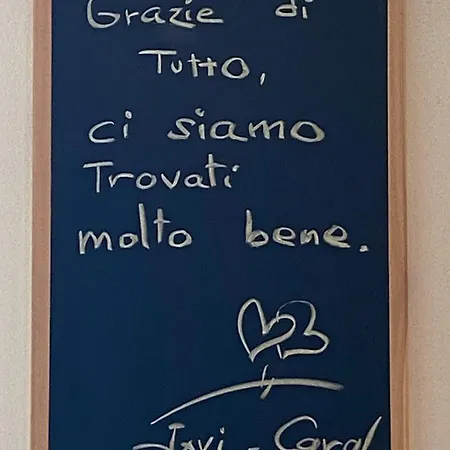 Grazie di
Tutto,
ci siamo
Trovati
molto bene.